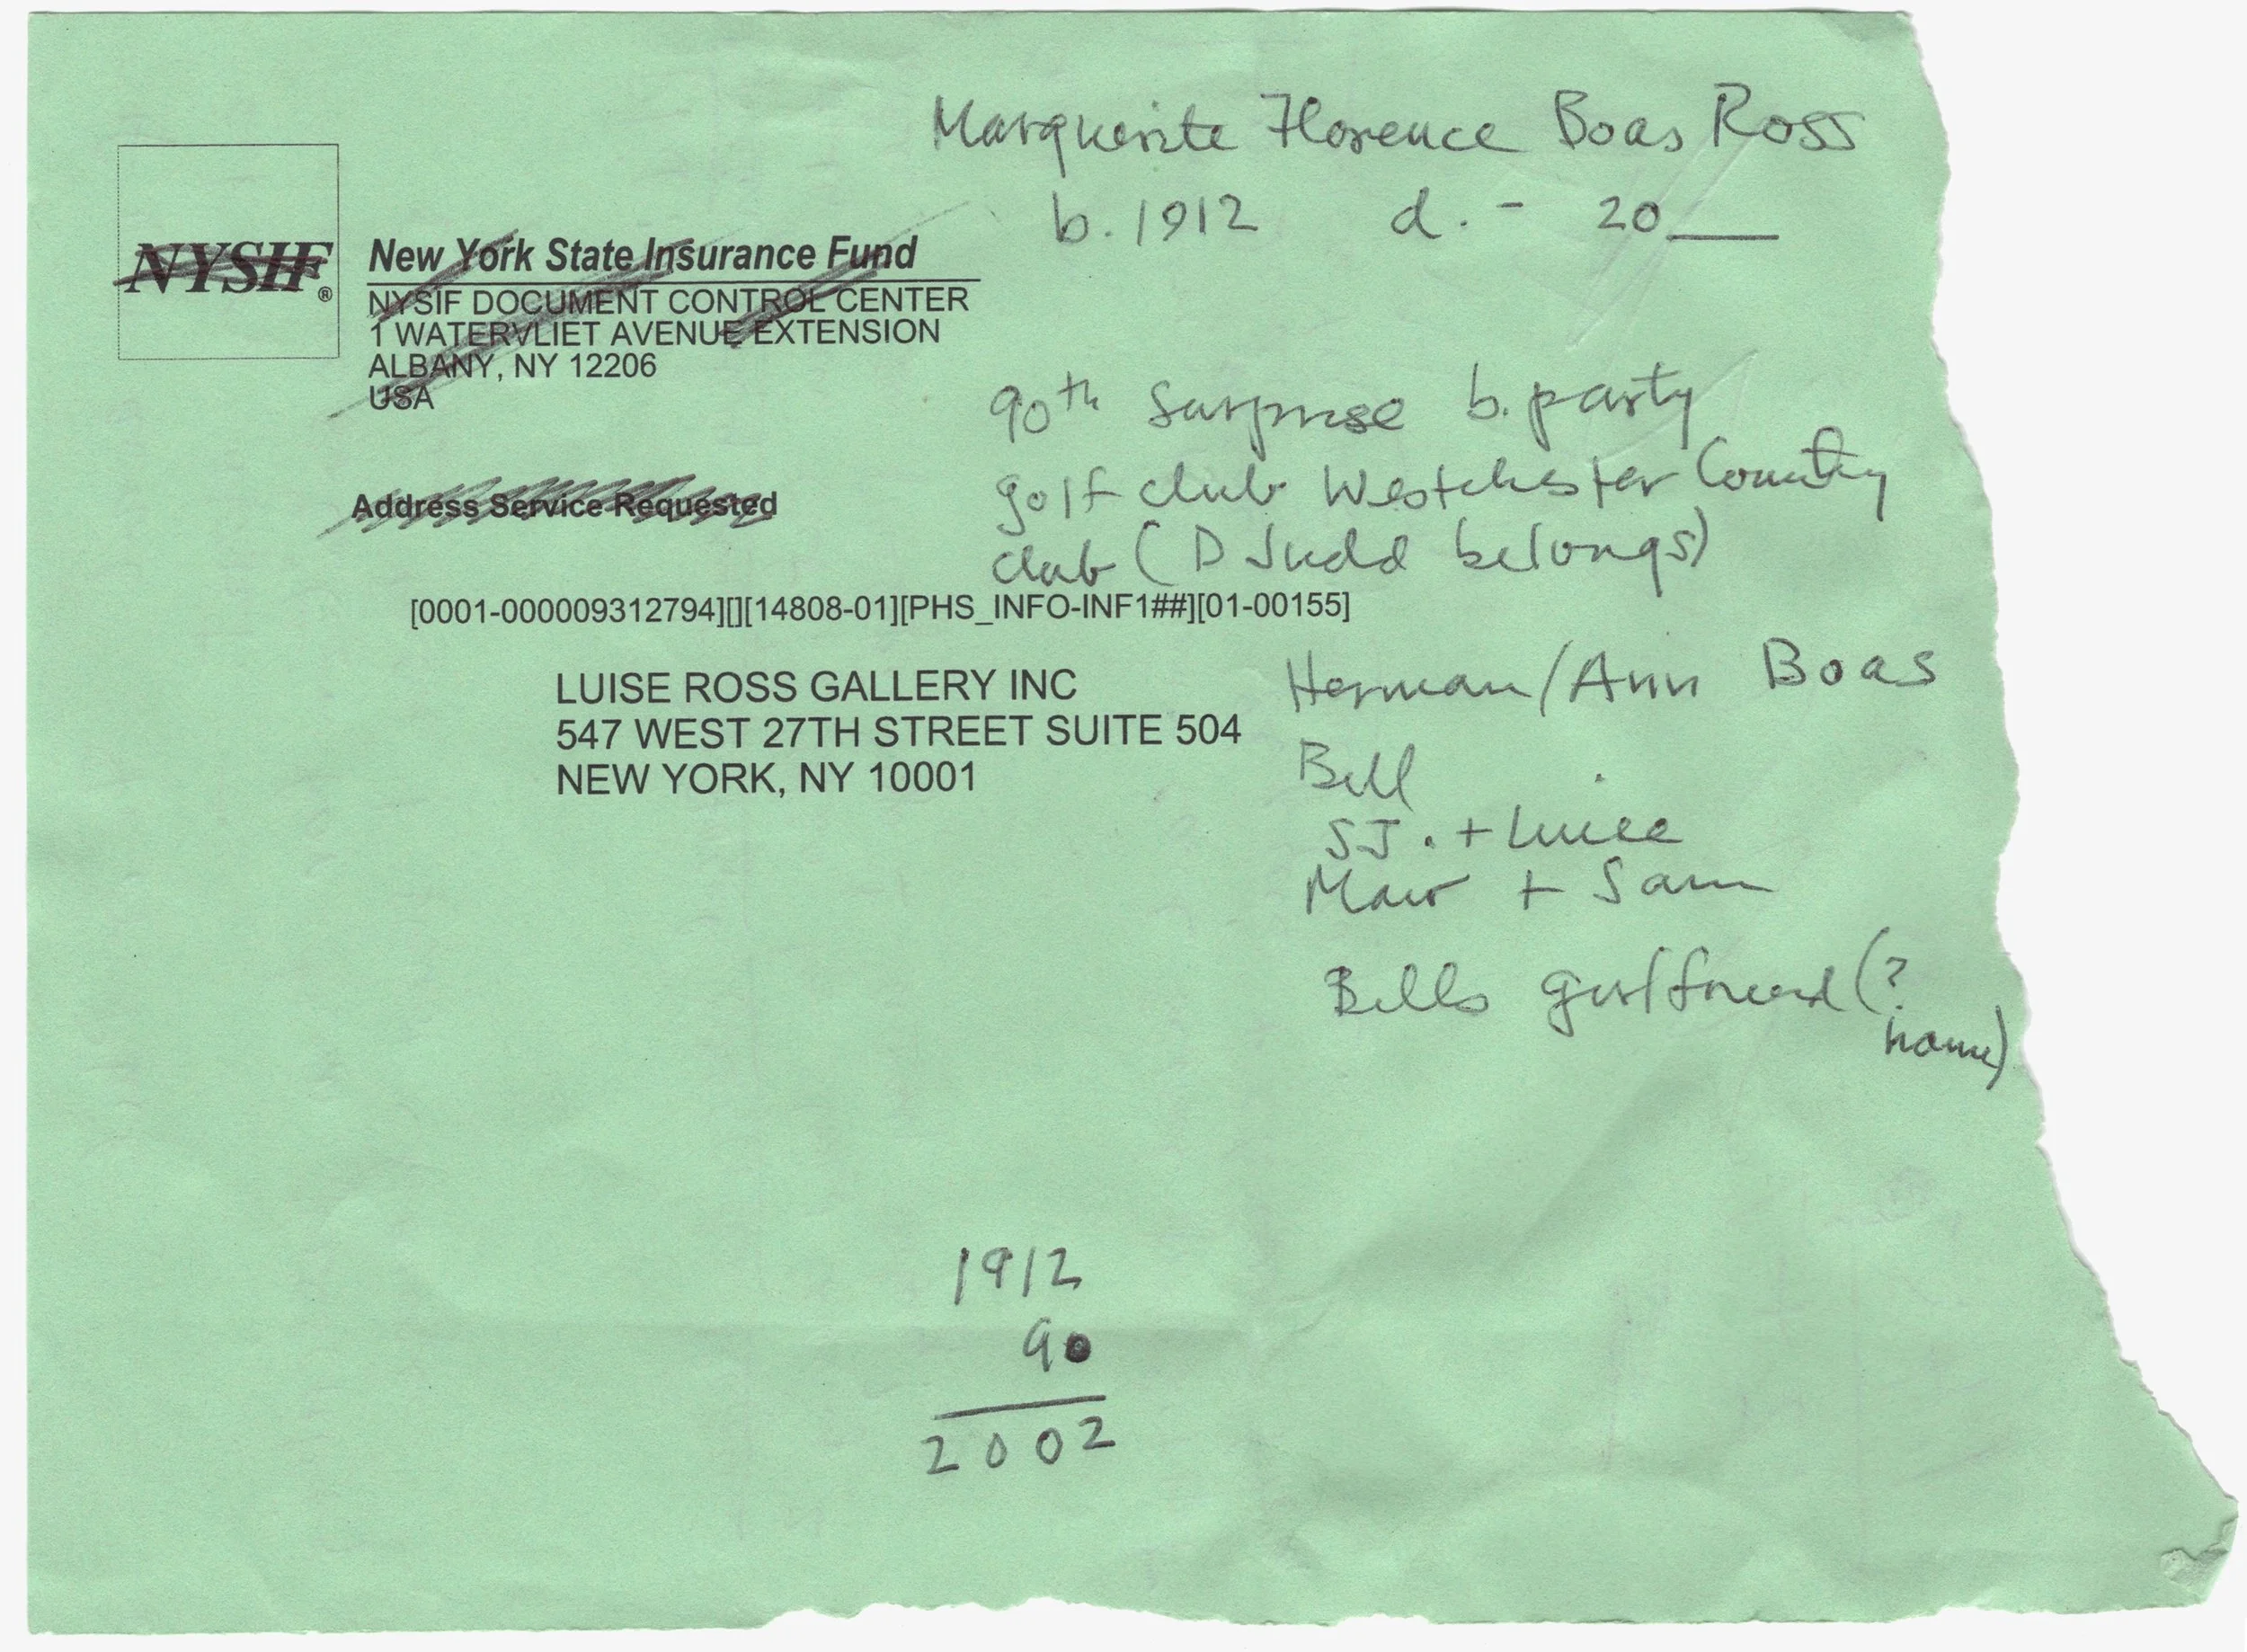 Marguerite Florence Boas Ross
b. 1912 d. - 20___
NYSIF®
New York State Insurance Fund
NYSIF DOCUMENT CONTROL CENTER
1 WATERVLIET AVENUE EXTENSION
ALBANY, NY 12206
USA
90th surprise b. party
golf club Westchester Country
club (D Judd belongs)
Address Service Requested
[0001-000009312794][][14808-01][PHS_INFO-INF1##][01-00155]
LUISE ROSS GALLERY INC
547 WEST 27TH STREET SUITE 504
NEW YORK, NY 10001
Herman/Ann Boas
Bill
SJ. + Luise
+ Sam
Bills girlfriend (?
name)
1912
90
2002